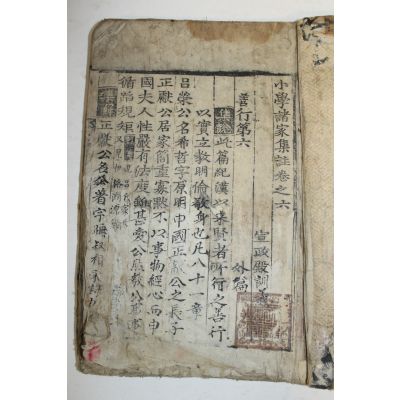 小學諸家集註卷之六
宣政殿訓義
外篇
善行第六
集解 此篇紀漢以來賢者所行之善行
以實立教明倫敬身也凡八十一章
呂滎公名希哲字原明申國正獻公之長子
正獻公居家簡重寡默不以事物經心而申
國夫人性嚴有法度雖甚愛公然教公事事
循蹈規矩
正獻公名公著字晦叔